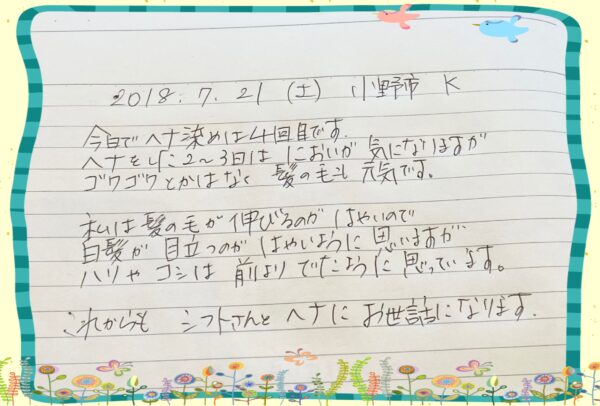 2018.7.21 (土) 小野市 K
今日でヘナ染めは4回目です.
ヘナをした2~3日は においが 気になりますが
ゴワゴワとかはなく 髪の毛も 元気です。
私は髪の毛が伸びるのが はやいので
白髪が 目立つのが はやいように 思いますが
ハリや コシは 前より でたように 思っています。
これからも シフトさんと ヘナに お世話になります.